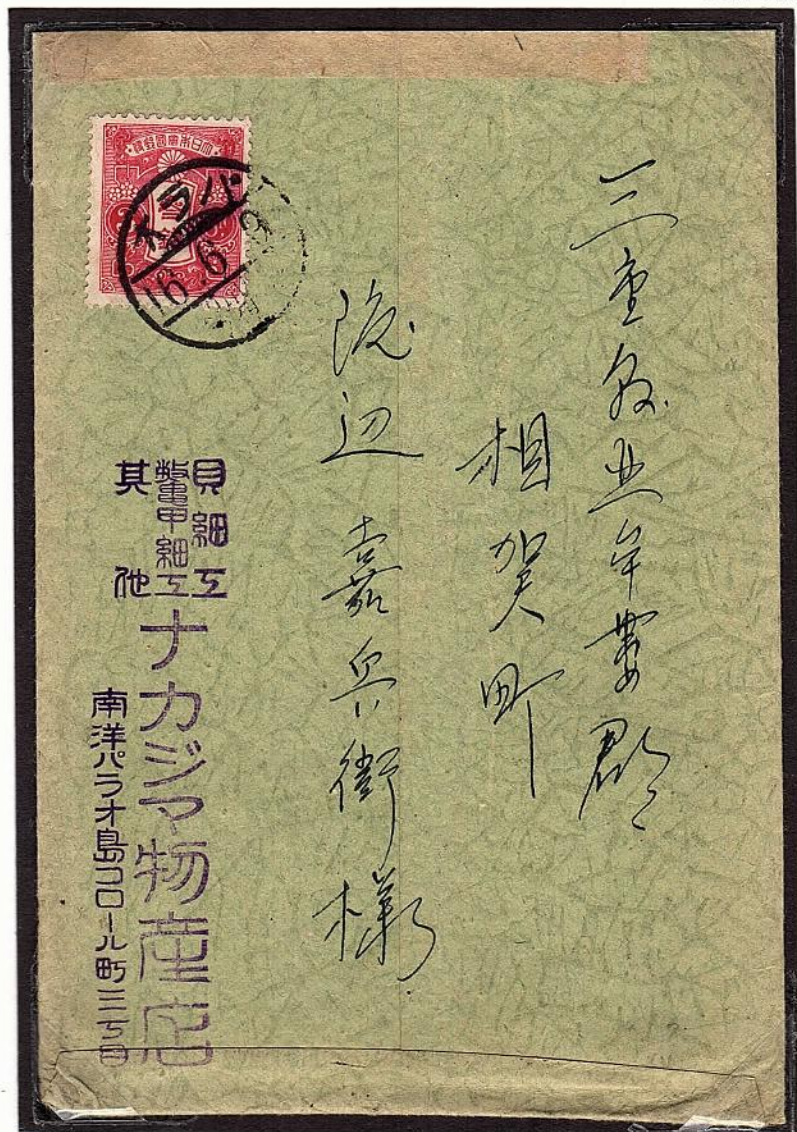 三重県北牟婁郡
相賀町
渡辺嘉兵衛様
大日本帝国郵便
パラオ
16.6.9
貝細工
鼈甲細工
其他
ナカジマ物産店
南洋パラオ島コロール町三丁目